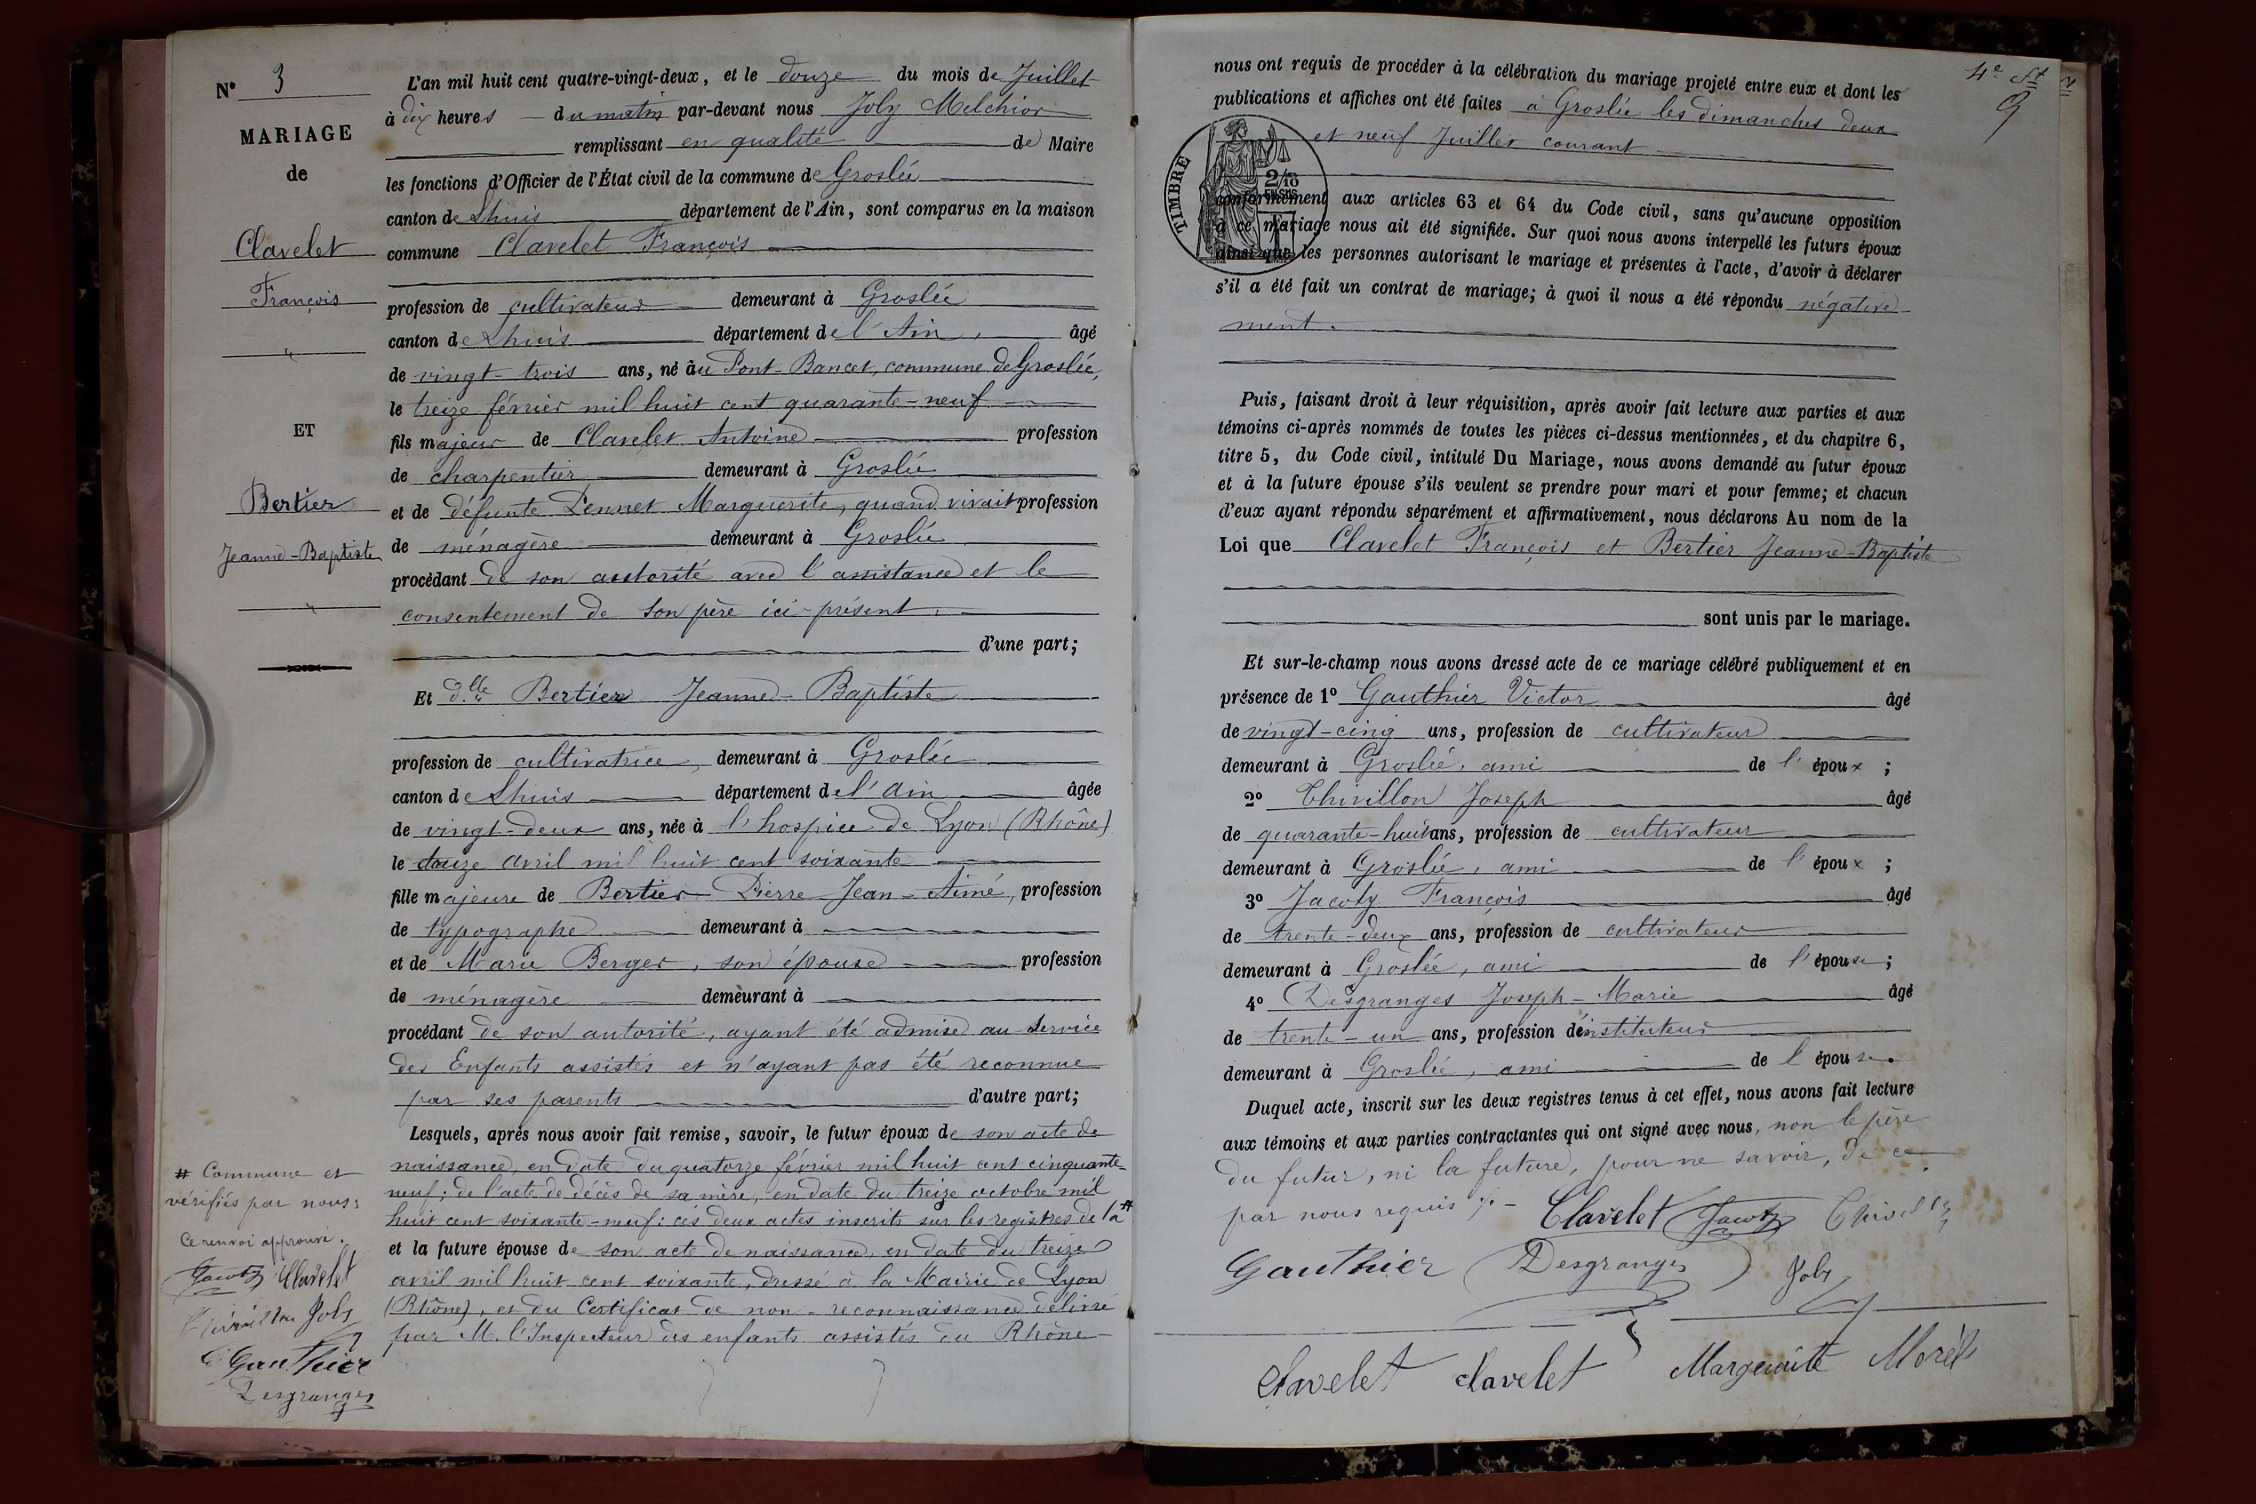 N° 3
MARIAGE
de
Clavelet
François
"
ET
Bertier
Jeanne-Baptiste
"
L'an mil huit cent quatre-vingt-deux, et le douze du mois de Juillet
à dix heures du matin par-devant nous Joly Melchior
remplissant en qualité de Maire
les fonctions d'Officier de l'État civil de la commune de Groslée
canton de Lhuis département de l'Ain, sont comparus en la maison
commune Clavelet François
profession de cultivateur demeurant à Groslée
canton de Lhuis département de l'Ain, âgé
de vingt-trois ans, né au Pont-Bancet, commune de Groslée,
le treize février mil huit cent quarante-neuf
fils majeur de Clavelet Antoine profession
de charpentier demeurant à Groslée
et de défunte Pennet Marguerite, quand vivait profession
de ménagère demeurant à Groslée
procédant de son autorité avec l'assistance et le
consentement de son père ici-présent,
d'une part;
Et dlle Bertier Jeanne-Baptiste
profession de cultivatrice, demeurant à Groslée
canton de Lhuis département de l'Ain âgée
de vingt-deux ans, née à l'hospice de Lyon (Rhône)
le douze avril mil huit cent soixante
fille majeure de Bertier Pierre Jean-Aimé, profession
de typographe demeurant à
et de Marie Berger, son épouse profession
de ménagère demeurant à
procédant de son autorité, ayant été admise au service
des Enfants assistés et n'ayant pas été reconnue
par ses parents d'autre part;
Lesquels, après nous avoir fait remise, savoir, le futur époux de son acte de
naissance, en date du quatorze février mil huit cent cinquante-
neuf; de l'acte de décès de sa mère, en date du treize octobre mil
huit cent soixante-neuf: ces deux actes inscrits sur les registres de la #
et la future épouse de son acte de naissance, en date du treize
avril mil huit cent soixante, dressé à la Mairie de Lyon
(Rhône), et du Certificat de non-reconnaissance délivré
par M. l'Inspecteur des enfants assistés du Rhône
# Commune et
vérifiés par nous:
Ce renvoi approuvé.
Jacoty Clavelet
Thivillon Joly
Gauthier
Desgranges
4e St
9
nous ont requis de procéder à la célébration du mariage projeté entre eux et dont les
publications et affiches ont été faites à Groslée les dimanches deux
et neuf Juillet courant
TIMBRE
2/10
EN SUS
conformément aux articles 63 et 64 du Code civil, sans qu'aucune opposition
à ce mariage nous ait été signifiée. Sur quoi nous avons interpellé les futurs époux
ainsi que les personnes autorisant le mariage et présentes à l'acte, d'avoir à déclarer
s'il a été fait un contrat de mariage; à quoi il nous a été répondu négative-
ment.
Puis, faisant droit à leur réquisition, après avoir fait lecture aux parties et aux
témoins ci-après nommés de toutes les pièces ci-dessus mentionnées, et du chapitre 6,
titre 5, du Code civil, intitulé Du Mariage, nous avons demandé au futur époux
et à la future épouse s'ils veulent se prendre pour mari et pour femme; et chacun
d'eux ayant répondu séparément et affirmativement, nous déclarons Au nom de la
Loi que Clavelet François et Bertier Jeanne-Baptiste
sont unis par le mariage.
Et sur-le-champ nous avons dressé acte de ce mariage célébré publiquement et en
présence de 1° Gauthier Victor âgé
de vingt-cinq ans, profession de cultivateur
demeurant à Groslée, ami de l'époux ;
2° Thivillon Joseph âgé
de quarante-huit ans, profession de cultivateur
demeurant à Groslée, ami de l'époux ;
3° Jacoty François âgé
de trente-deux ans, profession de cultivateur
demeurant à Groslée, ami de l'épouse;
4° Desgranges Joseph-Marie âgé
de trente-un ans, profession d'instituteur
demeurant à Groslée, ami de l'épouse.
Duquel acte, inscrit sur les deux registres tenus à cet effet, nous avons fait lecture
aux témoins et aux parties contractantes qui ont signé avec nous, non le père
du futur, ni la future, pour ne savoir, de ce
par nous requis ./. Clavelet Jacoty
Gauthier Desgranges Joly
Clavelet Clavelet Margerite Morel